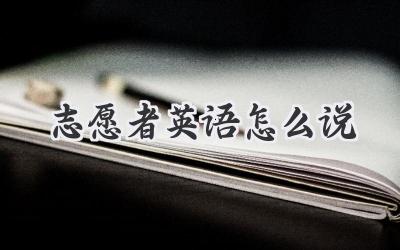 志愿者英语怎么说